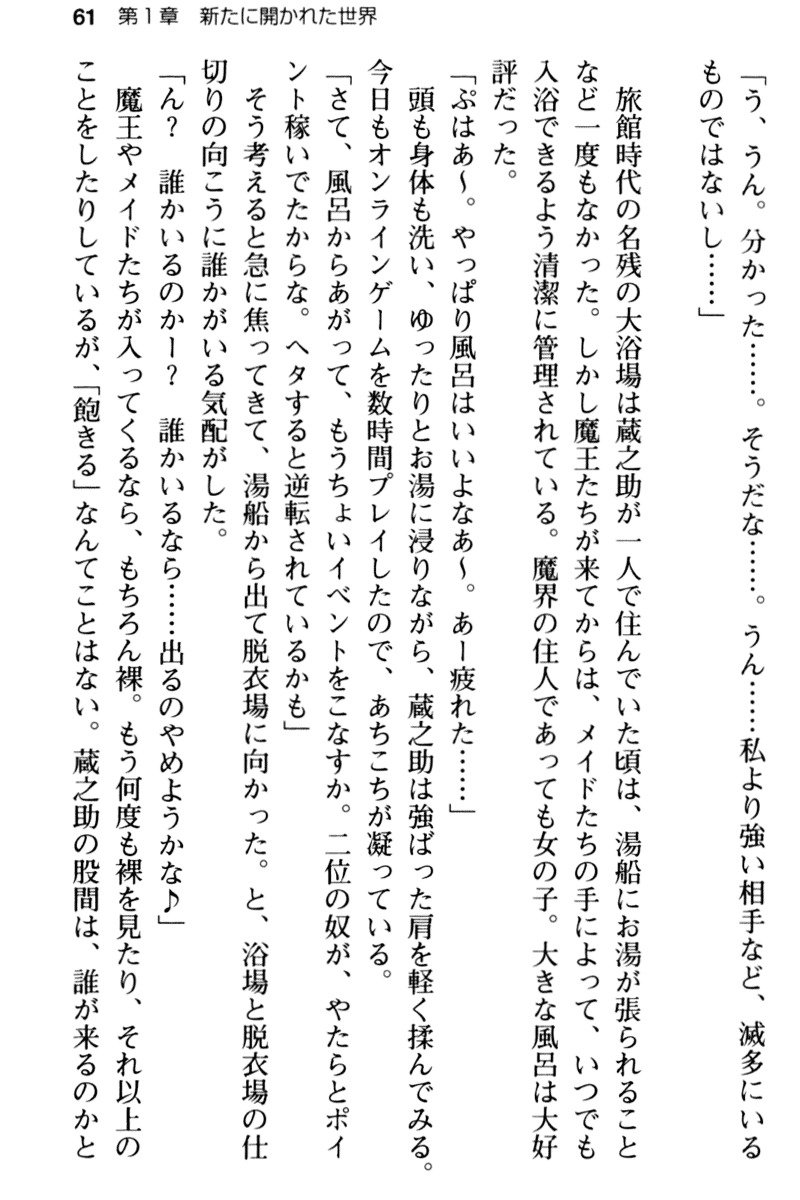 61 第1章 新たに開かれた世界
「う、うん。分かった……。そうだな……。うん……私より強い相手など、滅多にいる
ものではないし……」
旅館時代の名残の大浴場は蔵之助が一人で住んでいた頃は、湯船にお湯が張られること
など一度もなかった。しかし魔王たちが来てからは、メイドたちの手によって、いつでも
入浴できるよう清潔に管理されている。魔界の住人であっても女の子。大きな風呂は大好
評だった。
「ぷはあ～。やっぱり風呂はいいよなあ～。あー疲れた……」
頭も身体も洗い、ゆったりとお湯に浸りながら、蔵之助は強ばった肩を軽く揉んでみる。
今日もオンラインゲームを数時間プレイしたので、あちこちが凝っている。
「さて、風呂からあがって、もうちょいイベントをこなすか。二位の奴が、やたらとポイ
ント稼いでたからな。ヘタすると逆転されているかも」
そう考えると急に焦ってきて、湯船から出て脱衣場に向かった。と、浴場と脱衣場の仕
切りの向こうに誰かがいる気配がした。
「ん？　誰かいるのかー？　誰かいるなら……出るのやめようかな♪」
魔王やメイドたちが入ってくるなら、もちろん裸。もう何度も裸を見たり、それ以上の
ことをしたりしているが、「飽きる」なんてことはない。蔵之助の股間は、誰が来るのかと